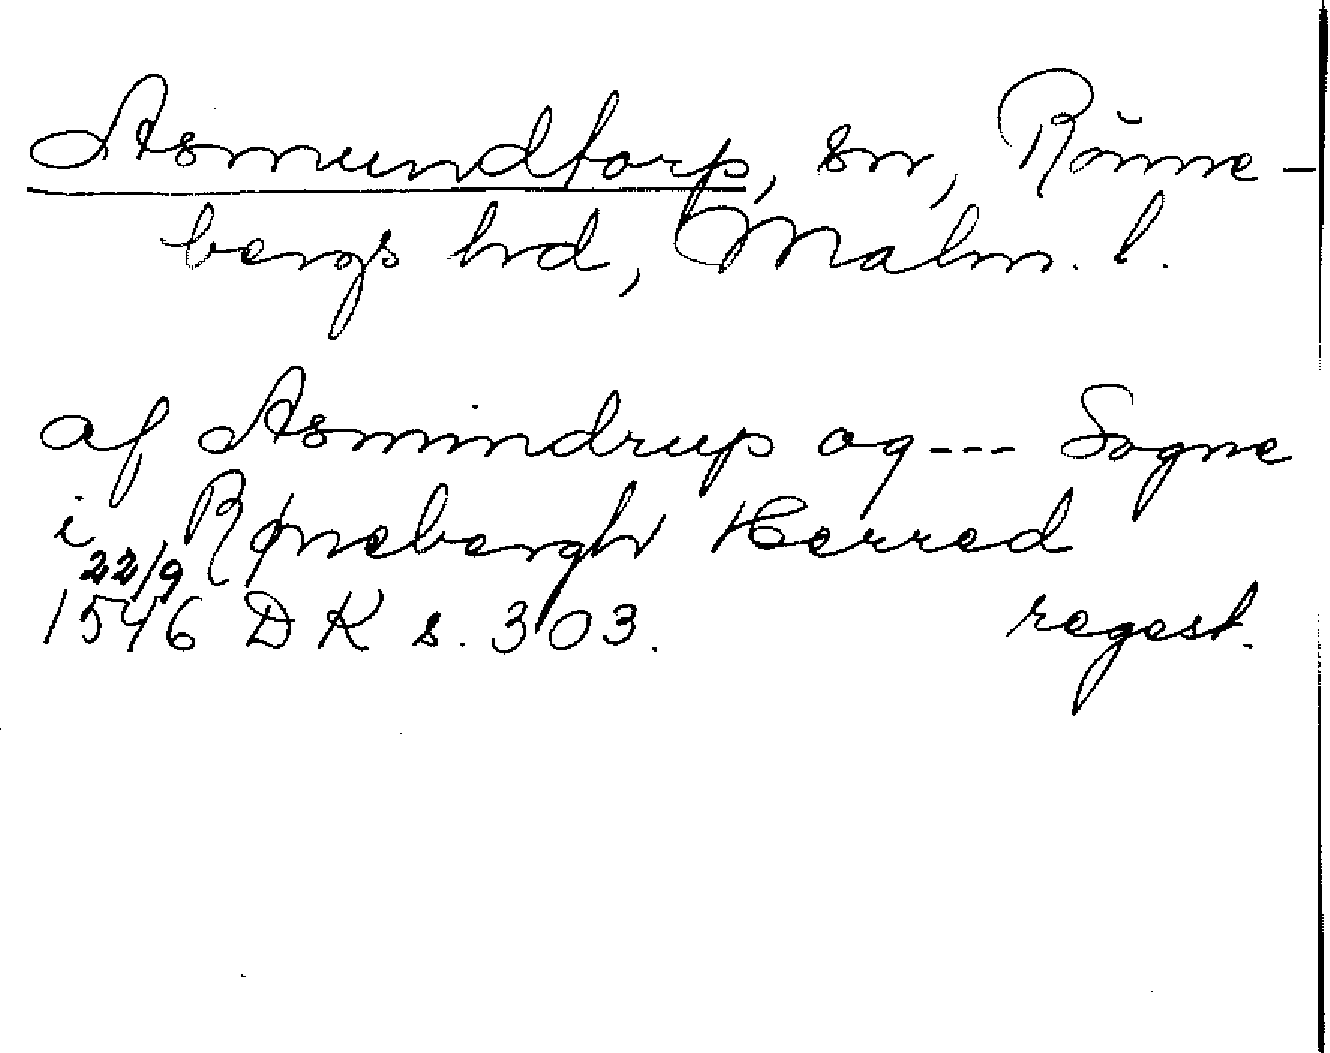 Asmundtorp, sn, Rönne-
bergs hd, Malm. l.
af Asmindrup og --- Sogne
i Rønebergh Herred
22/9
1546 DK s. 303. regest.